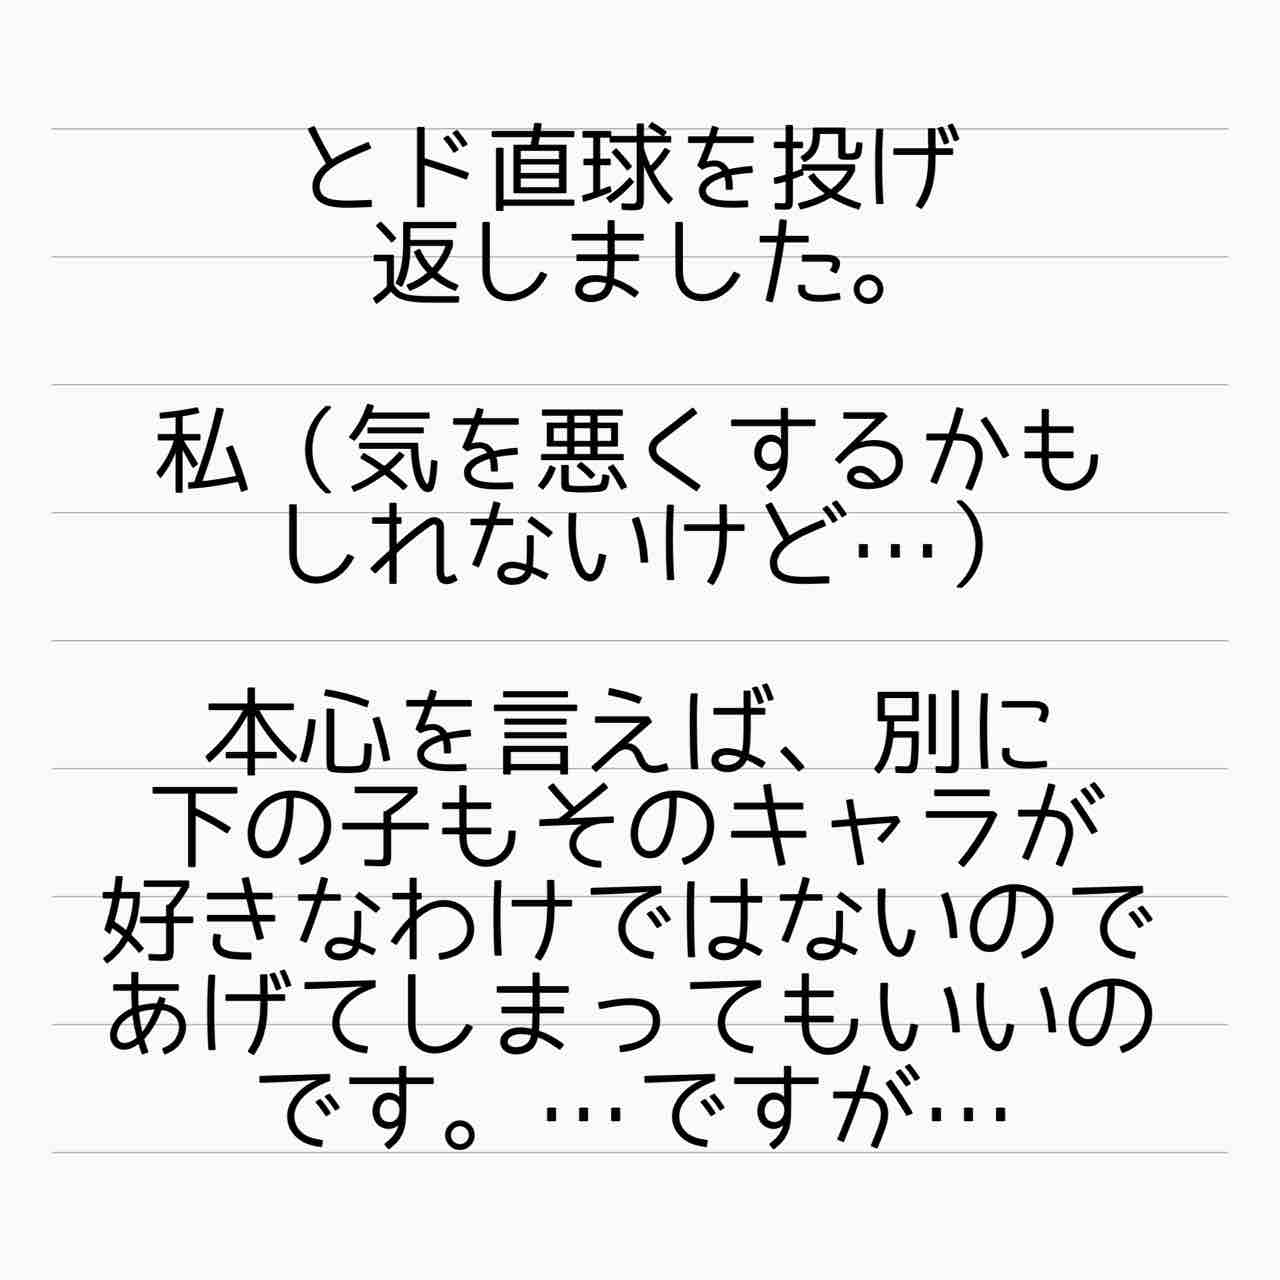 とド直球を投げ
返しました。
私（気を悪くするかも
しれないけど…）
本心を言えば、別に
下の子もそのキャラが
好きなわけではないので
あげてしまってもいいの
です。…ですが…